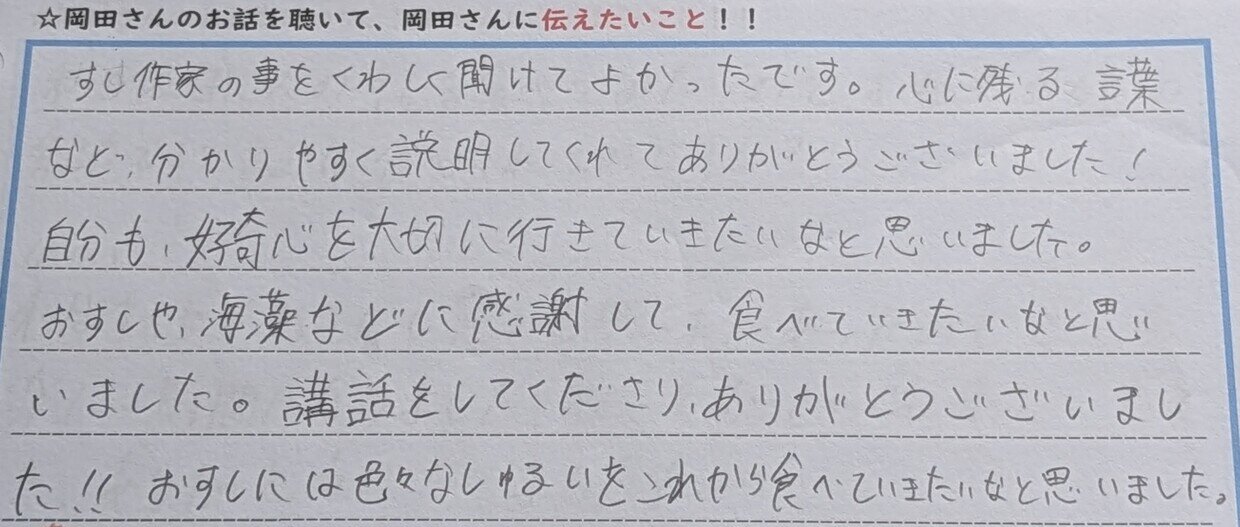 ☆岡田さんのお話を聴いて、岡田さんに伝えたいこと！！
すし作家の事をくわしく聞けてよかったです。心に残る言葉
など、分かりやすく説明してくれてありがとうございました！
自分も、好奇心を大切に行きていきたいなと思いました。
おすしや、海藻などに感謝して、食べていきたいなと思
いました。講話をしてくださり、ありがとうございまし
た!! おすしには色々なしゅるいをこれから食べていきたいなと思いました。